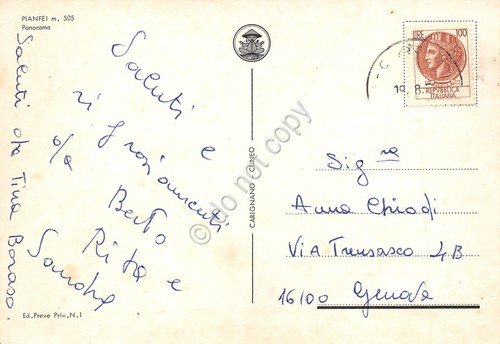 PIANFEI m. 505
Panorama
Saluti e
ringraziamenti
da
Berto
Rita e
Sandra
Saluti da Tina Bonaso.
Ed. Preve Priv. N. 1
CARIGNANO CUNEO
LIRE 100
REPVBBLICA
ITALIANA
Sig ra
Anna Chiodi
VIA Trensasco 4B
16100 Genova
©do not copy